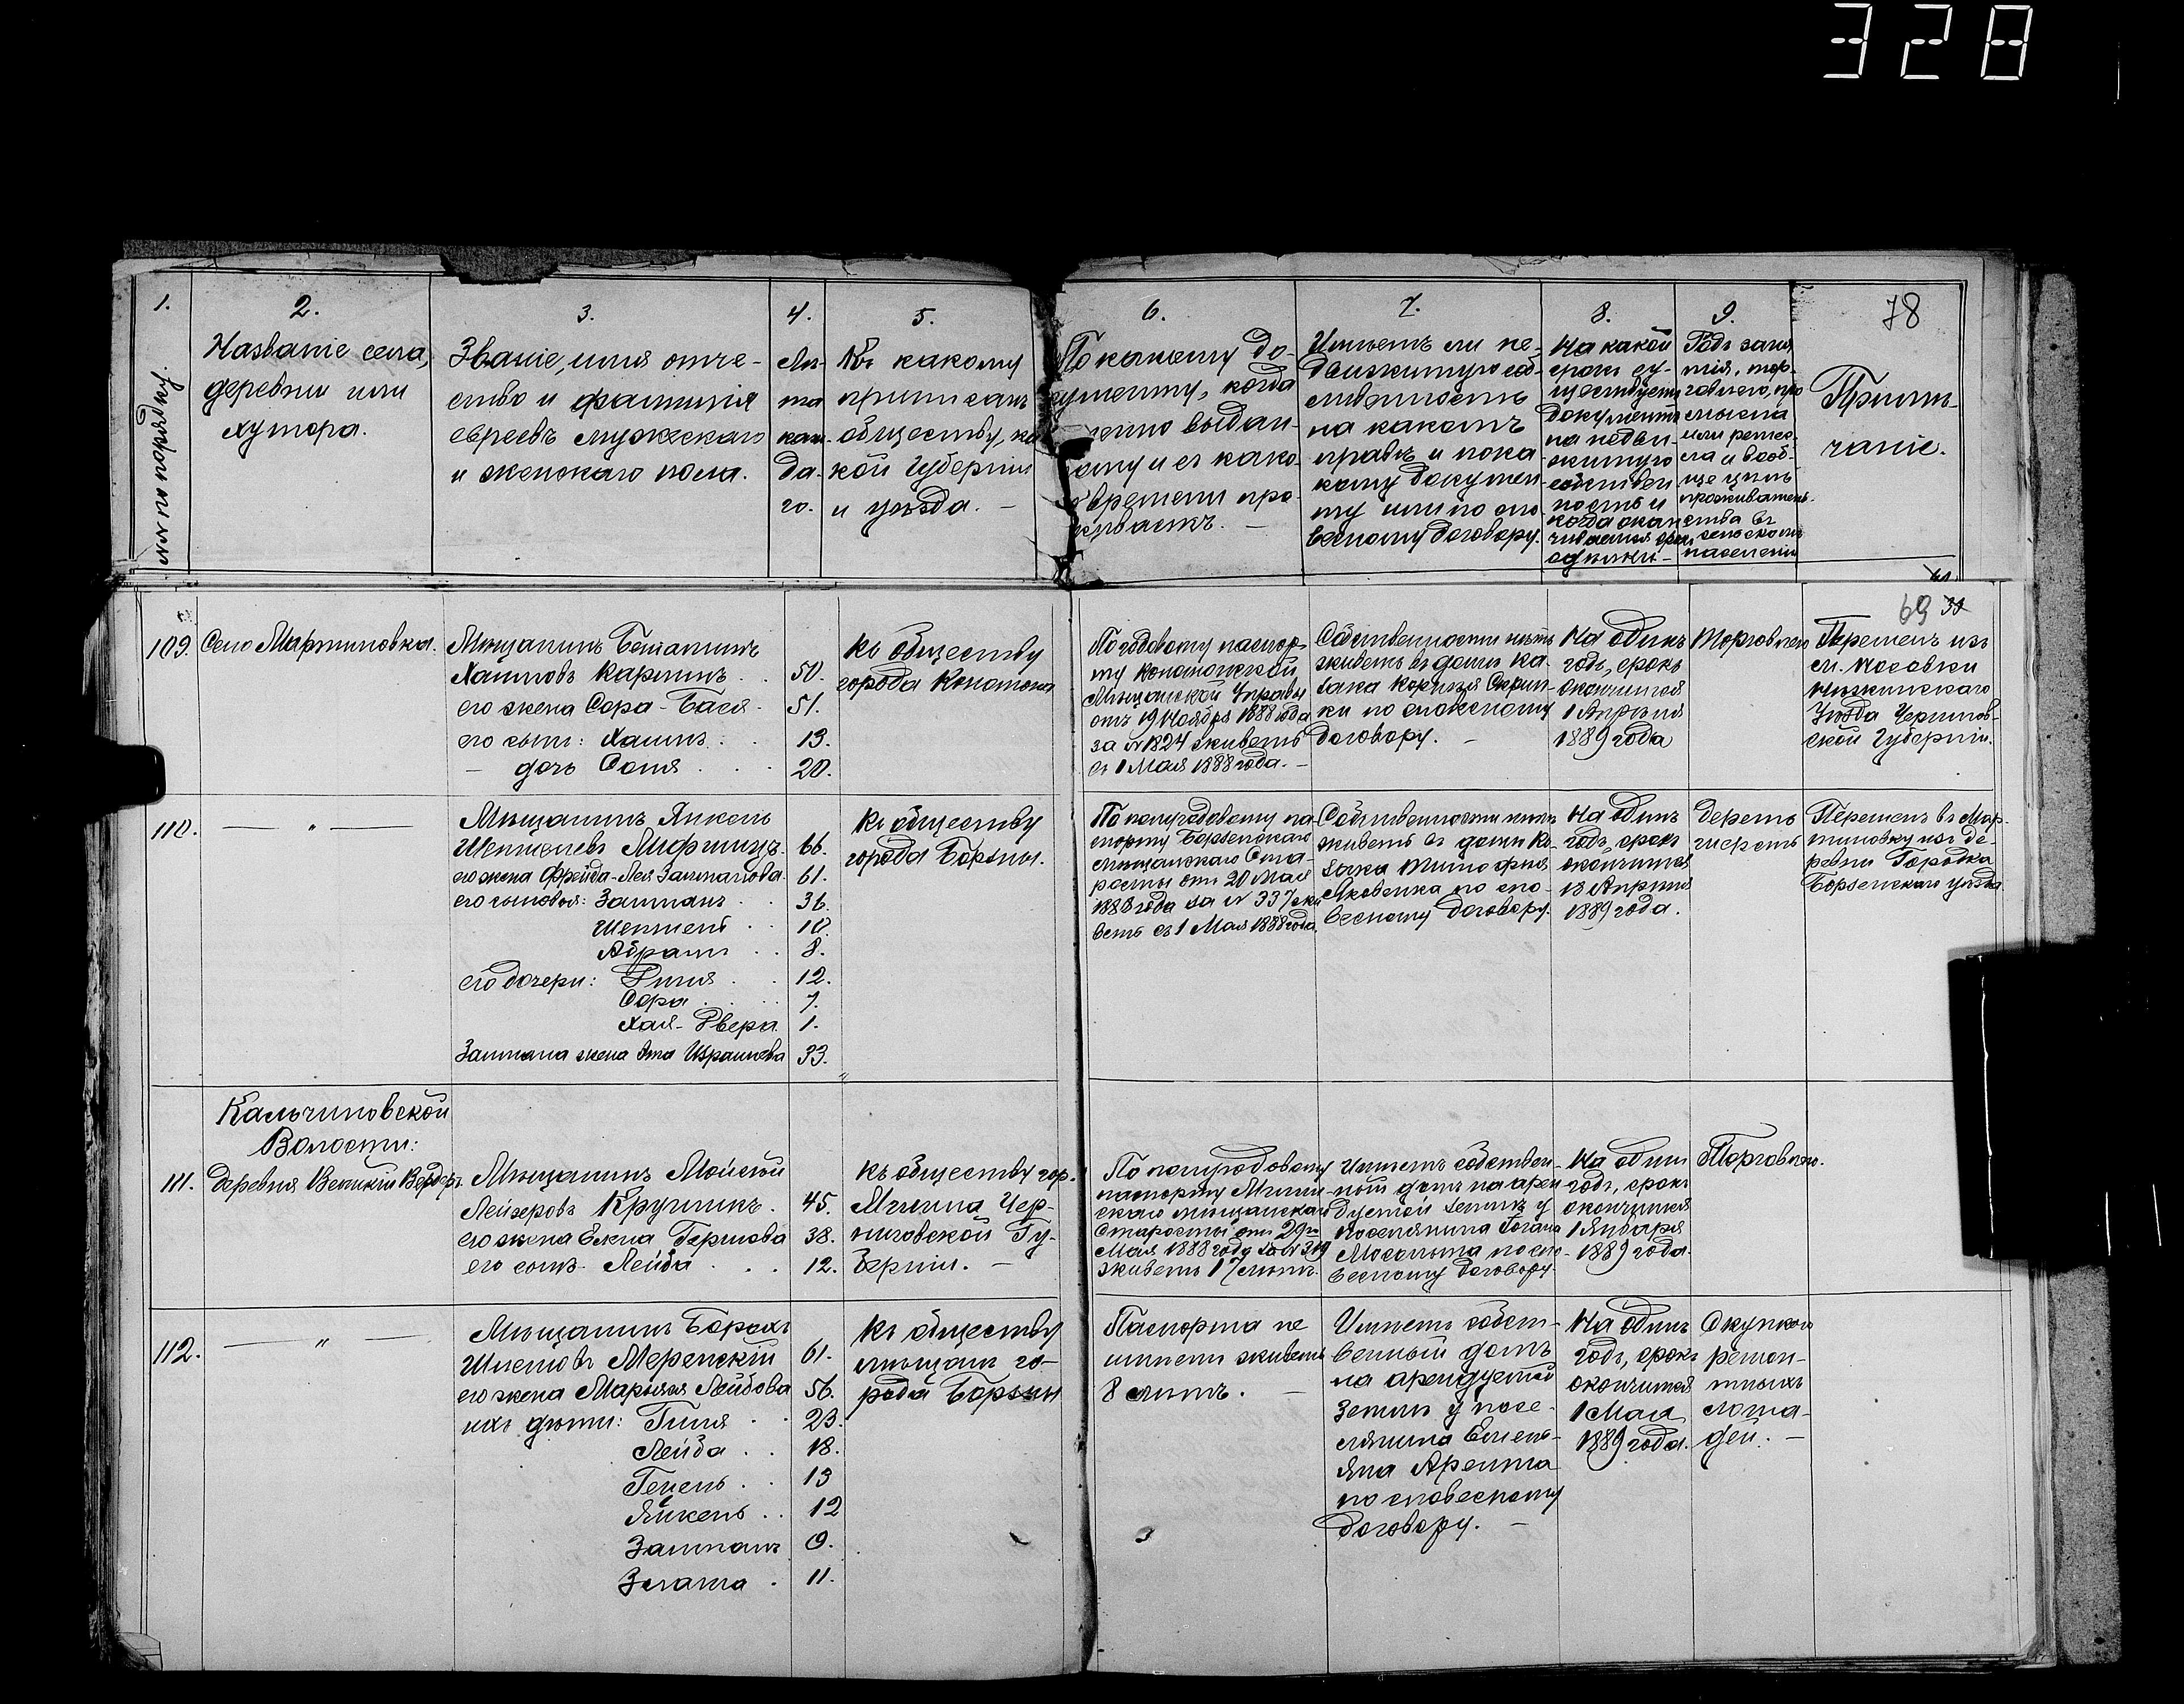 328
1.
№№ по порядку.
2.
Названіе села,
деревни или
хутора.
3.
Званіе, имя отче-
ство и фамилія
евреевъ мужескаго
и женскаго пола.
4.
Лѣ-
та
каж-
да-
го.
5.
Къ какому
приписанъ
обществу, ка
кой Губерніи
и уѣзда. —
6.
По какому до-
кументу, когда
выдан-
ному и съ како-
времени про-
живаетъ. —
7.
Имѣетъ ли не-
движимую соб-
ственность
на какомъ
правѣ и по ка
кому докумен
ту или по сло
весному договору.
8.
На какой
срокъ су-
ществуетъ
документъ
на недви-
жимую
собствен
ность и
когда окан
чивается срокъ
9.
Родъ заня
тія, тор-
говлею, про
мысла
или ремес-
ла и вооб-
ще цѣль
проживатель-
ства въ
сельскомъ
населеніи
78
Примѣ-
чаніе.
69 30
109. Село Мартиновка.
Мѣщанинъ Беніаминъ
Хаимовъ Карпинъ . . 50.
его жена Сора-Бася . 51.
его сынъ: Хаимъ . . 13.
— дочь Соня . . . 20.
Къ обществу
города Конотопа
По годовому паспор-
ту Конотопской
Мѣщанской Управы
отъ 19 Ноября 1888 года
за № 1824 живетъ
съ 1 Мая 1888 года. —
Собственности нѣтъ
живетъ въ домѣ ка-
зака Корнѣя Скрип-
ки по словесному
договору. —
На одинъ
годъ, срокъ
окончится
1 Апрѣля
1889 года
Торговлею
Перешелъ изъ
м. Носовки
Нѣжинскаго
Уѣзда Чернигов-
ской Губерніи.
110. — " —
Мѣщанинъ Янкель
Шепшелевъ Лифшицъ. 66.
его жена Фрейда-Лея Залманова. 61.
его сыновья: Залманъ . . 36.
Шепшель . . 10.
Абрамъ . . 8.
его дочери: Рися . . 12.
Сора . . . 7.
Хая-Двера. 1.
Залмана жена Эта Израилева 33.
Къ обществу
города Борзны.
По полугодовому па-
спорту Борзенскаго
мѣщанскаго Ста-
росты отъ 20 Мая
1888 года за № 337 жи
ветъ съ 1 Мая 1888 года
Собственности нѣтъ
живетъ въ домѣ Ка-
зака Тимофея
Яковенка по сло-
весному договору.
На одинъ
годъ, срокъ
окончится
13 Апрѣля
1889 года.
Деретъ
шерсть
Перешелъ въ Мар-
тиновку изъ де-
ревни Городка
Борзенскаго уѣзда
Кальчиновской
Волости:
111. Деревня Великій Вердеръ.
Мѣщанинъ Мойсей
Лейзеровъ Кругликъ . 45.
его жена Елка Гершова 38.
его сынъ Лейба . . . 12.
Къ обществу гор.
Мглина Чер-
ниговской Гу-
берніи. —
По полугодовому
паспорту Мглин-
скаго мѣщанскаго
Старосты отъ 29го
Мая 1888 года за № 319
живетъ 17 лѣтъ.
Имѣетъ собствен-
ный домъ на арен
дуемой землѣ у
поселянина Іогана
по сло-
весному договору
На одинъ
годъ, срокъ
окончится
1 Января
1889 года.
Торговлею.
112. — " —
Мѣщанинъ Борохъ
Шлемовъ Меренскій 61.
его жена Марьяся Лейбова 56.
ихъ дѣти: Гиля . . 23.
Лейба . . 18.
Генель . . 13
Янкель . . 12
Залманъ 9.
Злата . 11.
Къ обществу
мѣщанъ го-
рода Борзны
Паспорта не
имѣетъ живетъ
8 лѣтъ. —
Имѣетъ собст-
венный домъ
на арендуемой
землѣ у посе-
лянина Емель-
яна Арента
по словесному
договору. —
На одинъ
годъ, срокъ
окончится
1 Мая
1889 года.
Скупкою
ремон-
тныхъ
лоша-
дей. —